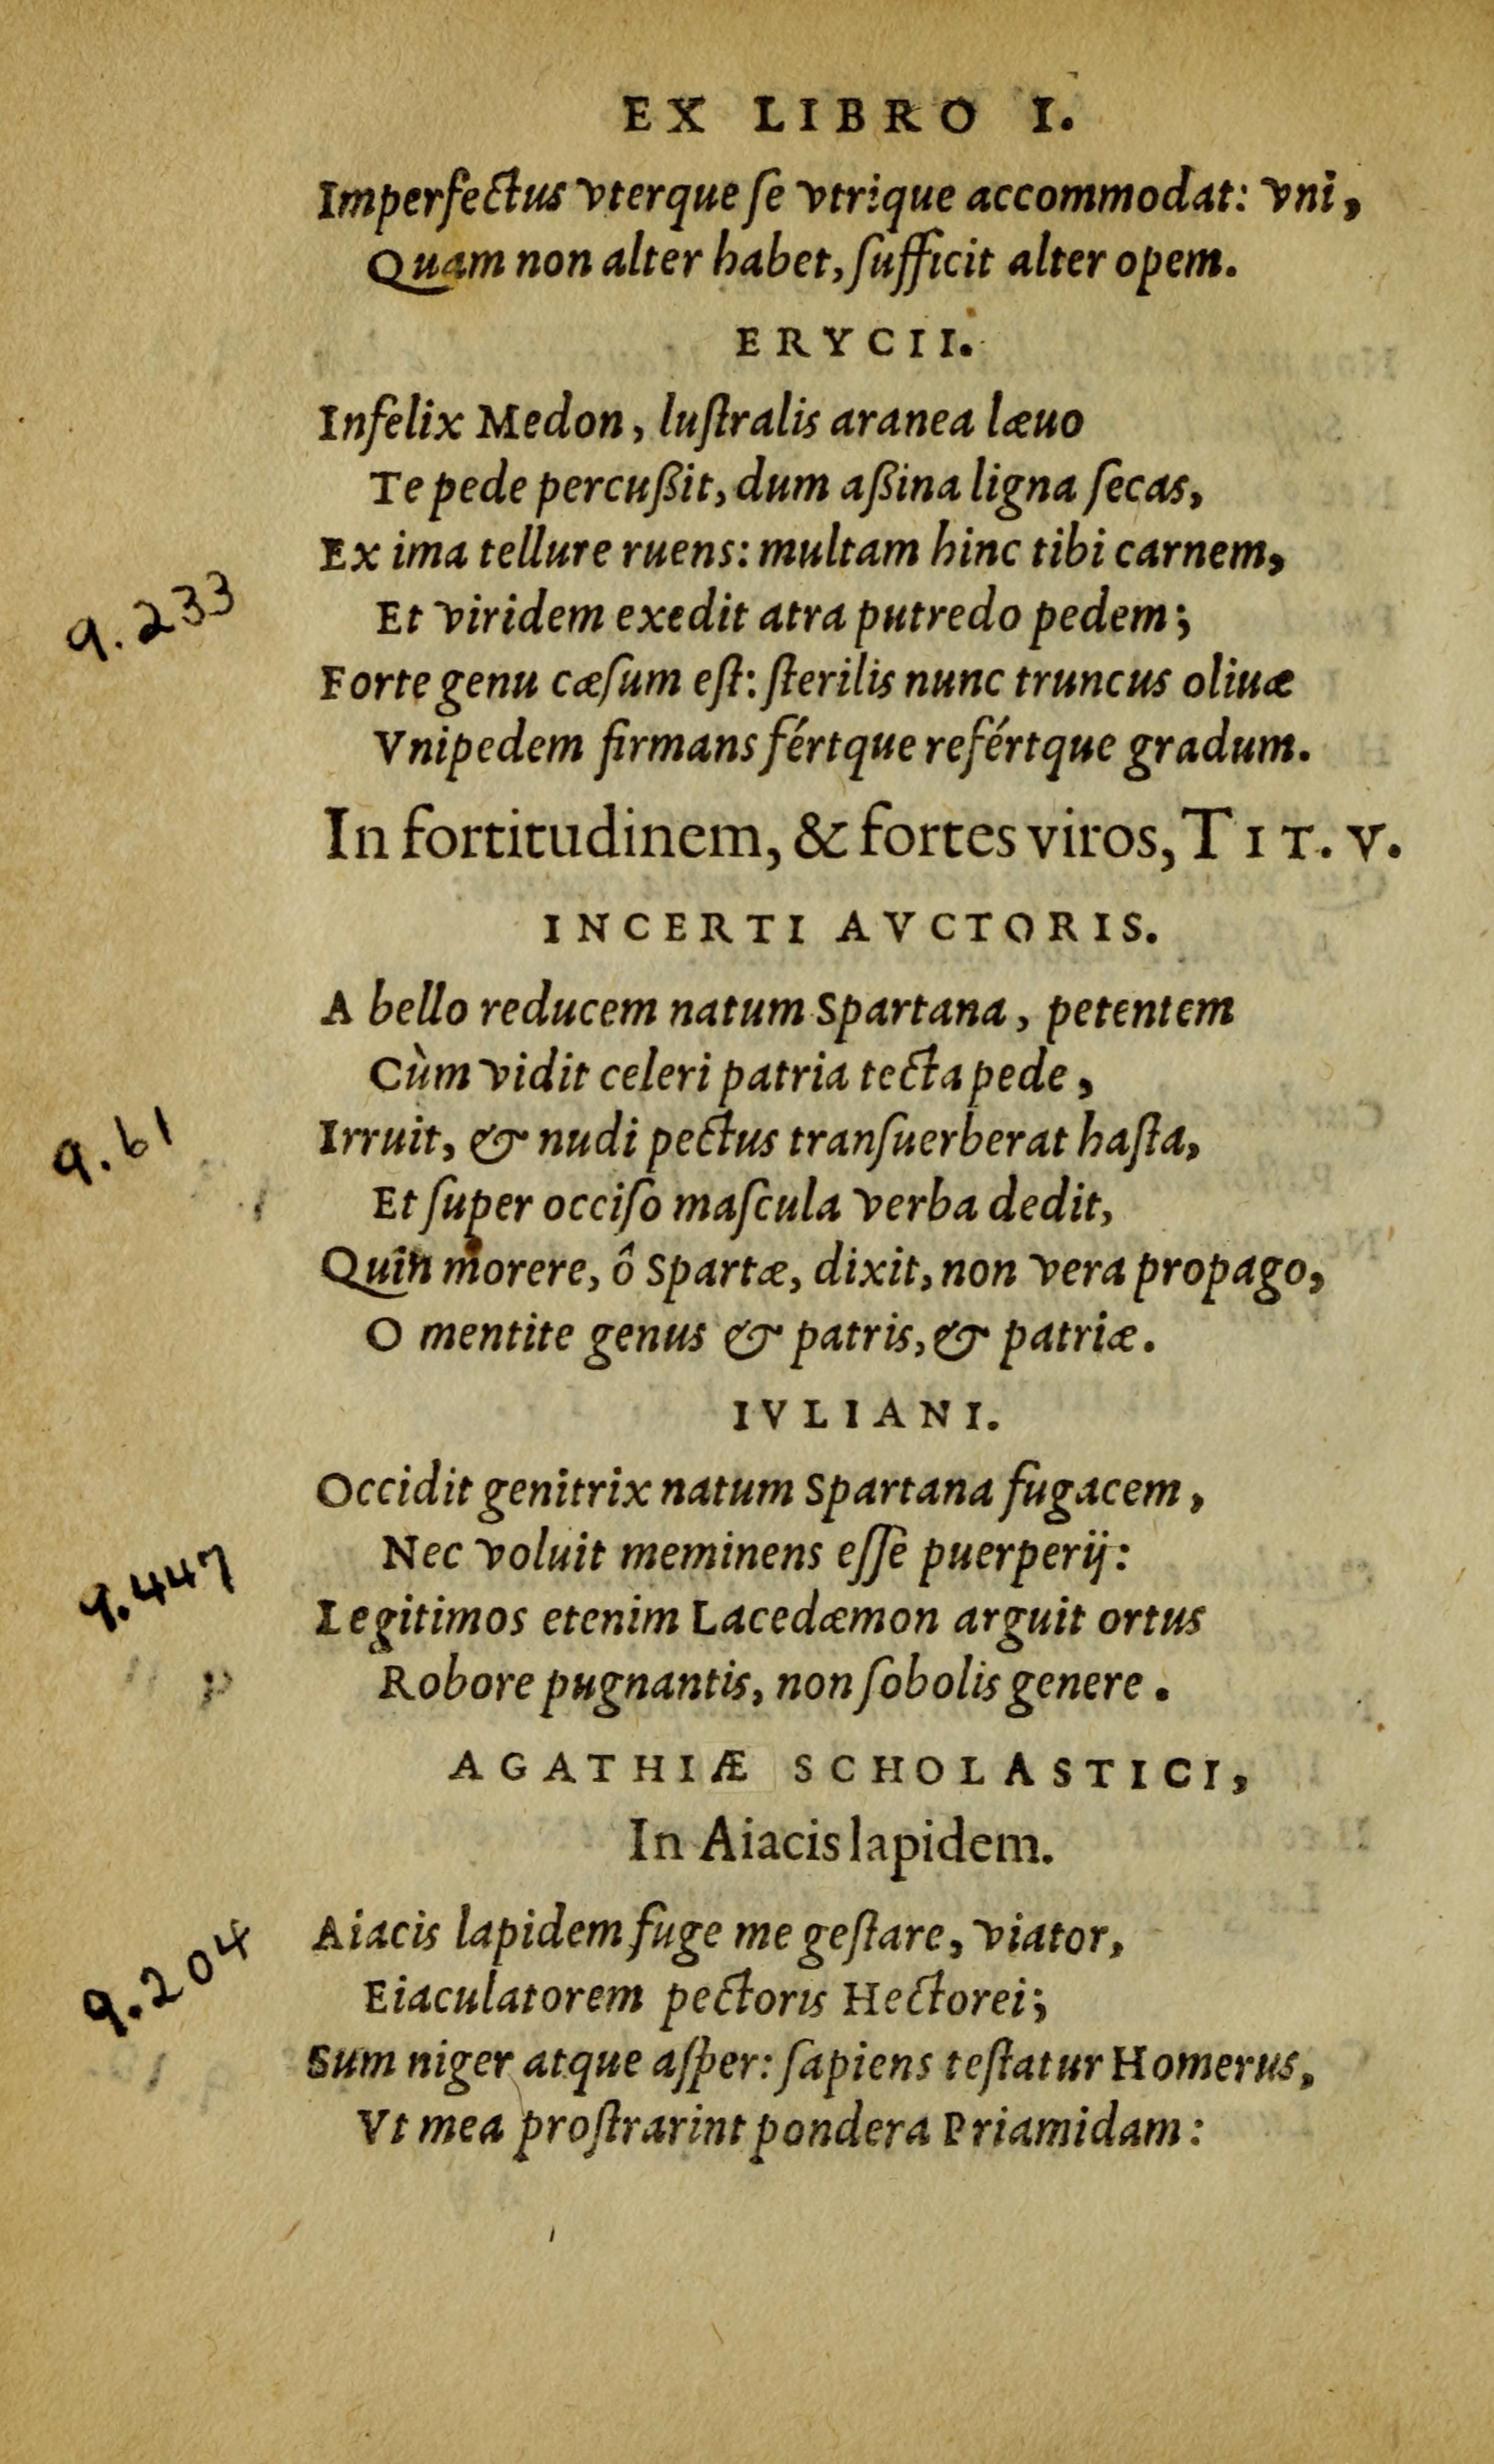 EX LIBRO I.
Imperfectus vterque ſe vtrique accommodat: vni,
Quam non alter habet, ſufficit alter opem.
ERYCII.
Infelix Medon, luſtralis aranea læuo
Te pede percußit, dum aßina ligna ſecas,
Ex ima tellure ruens: multam hinc tibi carnem,
9.233
Et viridem exedit atra putredo pedem;
Forte genu cæſum eſt: ſterilis nunc truncus oliuæ
Vnipedem firmans fértque refértque gradum.
In fortitudinem, & fortes viros, TIT. V.
INCERTI AVCTORIS.
A bello reducem natum Spartana, petentem
Cùm vidit celeri patria tecta pede,
9.61
Irruit, & nudi pectus tranſuerberat haſta,
Et ſuper occiſo maſcula verba dedit,
Quîn morere, ô Spartæ, dixit, non vera propago,
O mentite genus & patris, & patriæ.
IVLIANI.
Occidit genitrix natum Spartana fugacem,
Nec voluit meminens eſſe puerperij:
9.447
Legitimos etenim Lacedæmon arguit ortus
Robore pugnantis, non ſobolis genere.
AGATHIÆ SCHOLASTICI,
In Aiacis lapidem.
Aiacis lapidem fuge me geſtare, viator,
9.204
Eiaculatorem pectoris Hectorei;
Sum niger atque aſper: ſapiens teſtatur Homerus,
Vt mea proſtrarint pondera Priamidam: